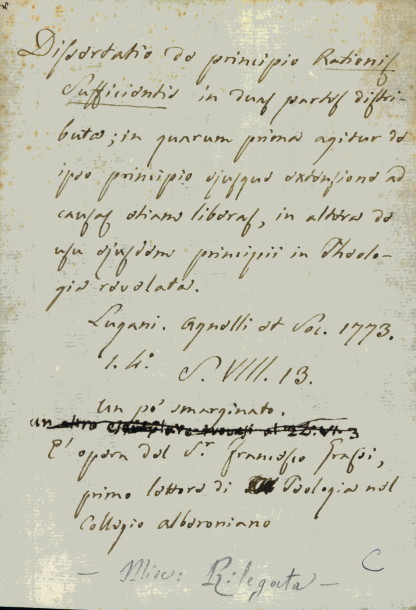 Dissertatio de principio Rationis
Sufficientis in duas partes distri-
buta; in quarum prima agitur de
ipso principio ejusque extensione ad
causas etiam liberas, in altera de
usu ejusdem principii in Theolo-
gia revelata.
Lugani. Agnelli et Soc. 1773.
1. 4°.
S. VIII. 13.
Un po' smarginato.
un altro esemplare trovasi al
E' opera del Sr. Francesco Grassi,
primo lettore di Teologia nel
Collegio alberoniano
C
- Misc: Rilegata -